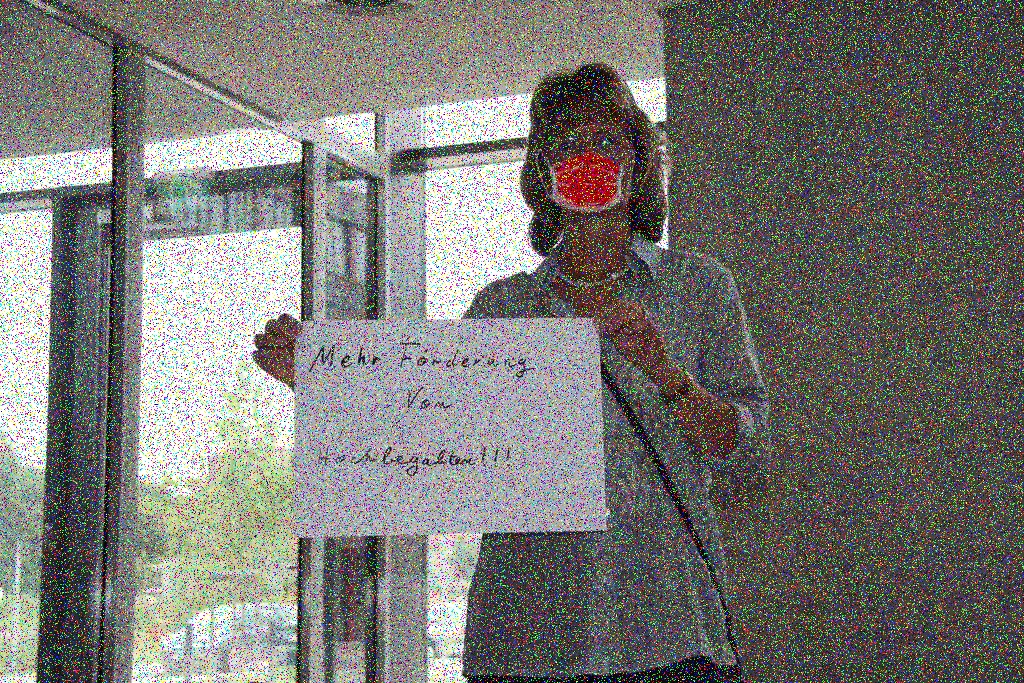 Mehr Förderung
Von
Hochbegabten!!!